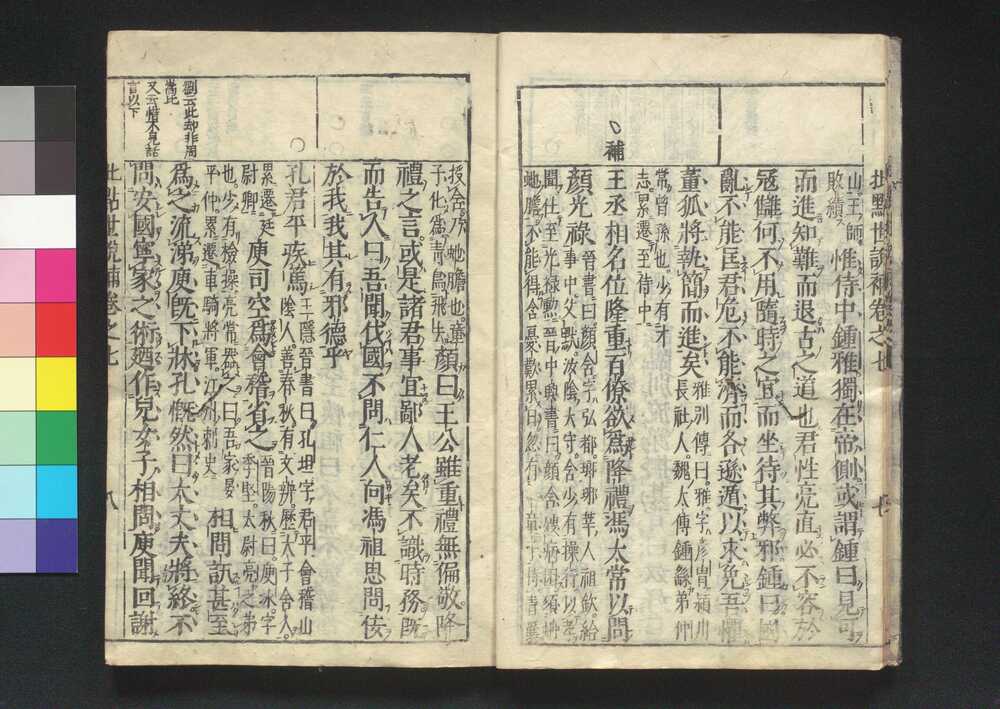 批點世說補卷之七 七
山王師敗績
惟侍中鍾雅獨在帝側或謂鍾曰見可
而進知難而退古之道也君性亮直必不容於
寇讎何不用隨時之宜而坐待其弊邪鍾曰國
亂不能匡君危不能濟而各遜遁以求免吾懼
董狐將執簡而進矣
雅別傳曰雅字彥冑潁川
長社人魏太傅鍾繇弟仲
常曾孫也少有才
志累遷至侍中
補
王丞相名位隆重百僚欲爲降禮馮太常以問
顏光祿
晉書曰顏含字弘都瑯琊莘人祖欽給
事中父默汝陰太守含少有操行以孝
聞仕至光祿勳晉中興書曰顏含嫂病困須蚺
蛇膽不能得含憂歎累日忽有一童子持青囊
授含乃蛇膽也童
子化爲青鳥飛去
顏曰王公雖重禮無偏敬降
禮之言或是諸君事宜鄙人老矣不識時務既
而告人曰吾聞伐國不問仁人向馮祖思問佞
於我我其有邪德乎
孔君平疾篤
王隱晉書曰孔坦字君平會稽山
陰人善春秋有文辨歷太子舍人
累遷廷
尉卿
庾司空爲會稽省之
晉陽秋曰庾冰字
季堅太尉亮之弟
也少有檢操亮常器之曰吾家晏
平仲累遷車騎將軍江州刺史
相問訊甚至
爲之流涕庾既下牀孔慨然曰大丈夫將終不
問安國寧家之術廼作兒女子相問庾聞回謝
劉云此却非周
嵩比
又云惜不見話
言以下
批點世說補卷之七 八